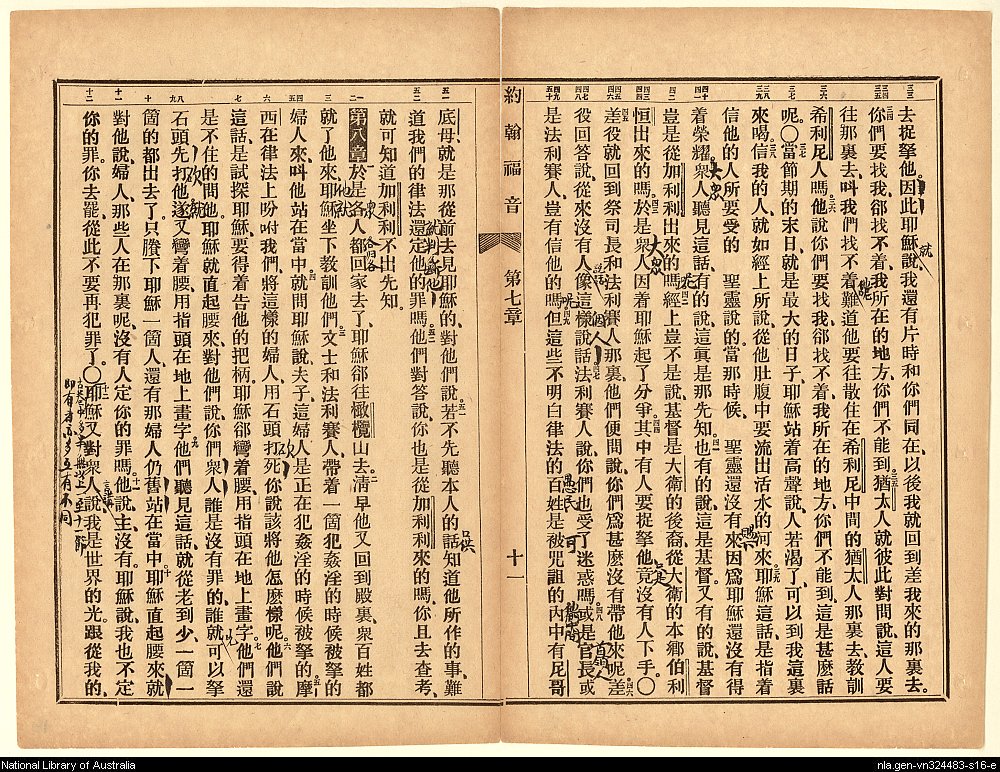 去捉拏他。因此耶穌說、我還有片時和你們同在、以後我就回到差我來的那裏去。
你們要找我、卻找不着、我所在的地方、你們不能到。猶太人就彼此對問說、這人要
往那裏去、叫我們找不着、難道他要往散住在希利尼中間的猶太人那裏去、教訓
希利尼人嗎。他說你們要找我、卻找不着、我所在的地方、你們不能到、這是甚麼話
呢。〇當節期的末日、就是最大的日子、耶穌站着高聲說、人若渴了、可以到我這裏
來喝。信我的人、就如經上所說、從他肚腹中要流出活水的河來。耶穌這話、是指着
信他的人所要受的 聖靈說的、當那時候 聖靈還沒有來、因爲耶穌還沒有得
着榮耀。衆人聽見這話、有的說、這眞是那先知。也有的說、這是基督。又有的說、基督
豈是從加利利出來的嗎。經上豈不是說、基督是大衛的後裔、從大衛的本鄉伯利
恒出來的嗎。於是衆人因着耶穌起了分爭。其中有人要捉拏他、竟沒有人下手。〇
差役就回到祭司長和法利賽人那裏、他們便問說、你們爲甚麼沒有帶他來呢。差
役回答說、從來沒有人像這樣說話。法利賽人說、你們也受了迷惑嗎。或是官長、或
是法利賽人、豈有信他的嗎。但這些不明白律法的百姓、是被咒詛的。內中有尼哥
約翰福音 第七章 十一
底母、就是那從前去見耶穌的、對他們說、若不先聽本人的話、知道他所作的事、難
道我們的律法還定他的罪嗎。他們對答說、你也是從加利利來的嗎、你且去查考、
就可知道加利利不出先知。
第八章 於是各人都回家去了、耶穌卻往橄欖山去。淸早他又回到殿裏、衆百姓都
就了他來、耶穌坐下教訓他們。文士和法利賽人、帶着一箇犯姦淫的時候被拏的
婦人來、叫他站在當中。就問耶穌說、夫子、這婦人是正在犯姦淫的時候被拏的。摩
西在律法上吩咐我們、將這樣的婦人、用石頭打死、你說該將他怎麼樣呢。他們說
這話、是試探耶穌、要得着告他的把柄。耶穌卻彎着腰、用指頭在地上畫字。他們還
是不住的問他、耶穌就直起腰來、對他們說、你們衆人、誰是沒有罪的、誰就可以拏
石頭先打他。遂又彎着腰、用指頭在地上畫字。他們聽見這話、就從老到少、一箇一
箇的都出去了。只賸下耶穌一箇人、還有那婦人仍舊站在當中。耶穌直起腰來、就
對他說、婦人、那些人在那裏呢、沒有人定你的罪嗎。他說、主、沒有。耶穌說、我也不定
你的罪。你去罷、從此不要再犯罪了。〇耶穌又對衆人說、我是世界的光。跟從我的、
大衆
大衆
愚民
National Library of Australia
nla.gen-vn324483-s16-e